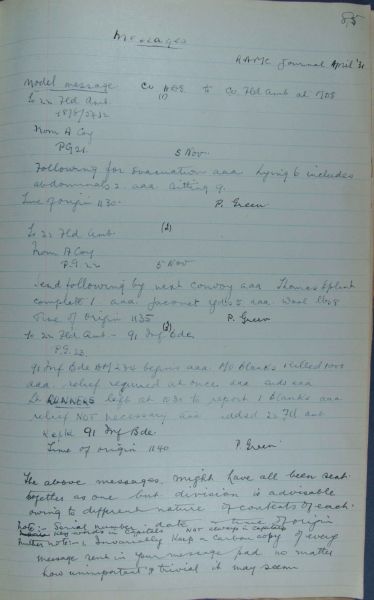 85
Messages
RAMC Journal April '31
Model message Co ADS to Co Fld Amb at MDS
(1)
To 22 Fld Amb
From A Coy
PG21. 5 Nov
Following for evacuation aaa Lying 6 includes
abdominals 2 aaa sitting 9.
Time of origin 1130. P. Green
(2)
To 22 Fld Amb
From A Coy
P.G. 22 5 Nov
Send following by next convoy aaa Thomas Splint
complete 1 aaa Jaconet yds 5 aaa Wool lbs 8
Time of origin 1135 P. Green
(3)
To 22 Fld Amb - 91 Inf Bde
P.G. 23
91 Inf Bde BM 234 begins aaa MO Blanks killed
aaa relief required at once aaa ends aaa
Lt RUNNERS left at 1130 to report 1 Blanks aaa
relief NOT necessary aaa added 22 Fld Amb
91 Inf Bde
Time of origin 1140 P. Green
The above messages might have all been sent
together as one but division is advisable
owing to different nature of contents of each.
Note:- Serial number, date & time of origin
key words in capitals NOT always in capitals
Further note:- Invariably keep a carbon copy of every
message sent in your message pad no matter
how unimportant & trivial it may seem